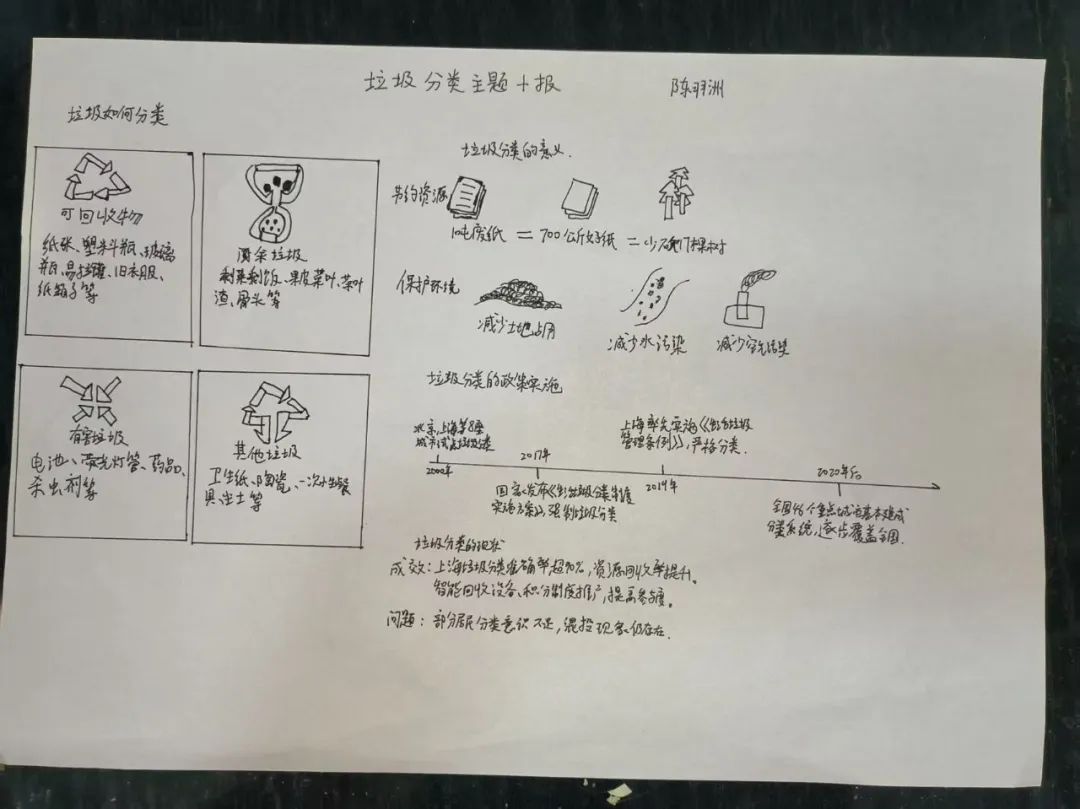 垃圾分类主题小报
陈羽洲
垃圾如何分类
可回收物
纸张、塑料瓶、玻璃
瓶、易拉罐、旧衣服、
纸箱子等
厨余垃圾
剩菜剩饭、果皮菜叶、茶叶
渣、骨头等
有害垃圾
电池、荧光灯管、药品、
杀虫剂等
其他垃圾
卫生纸、陶瓷、一次性餐
具、尘土等
垃圾分类的意义
节约资源
1吨废纸 = 700公斤好纸 = 少砍17棵树
保护环境
减少土地占用
减少水污染
减少空气污染
垃圾分类的政策实施
北京、上海等8座
城市试点垃圾分类
2000年
2017年
国家发布《生活垃圾分类制度
实施方案》,强制垃圾分类
上海率先实施《生活垃圾
管理条例》,严格分类.
2019年
2020年后
全国46个重点城市基本建成
分类系统,逐步覆盖全国.
垃圾分类的现状
成效:上海垃圾分类准确率超90%,资源回收率提升。
智能回收设备、积分制度推广,提高参与度。
问题:部分居民分类意识不足,混投现象仍存在.